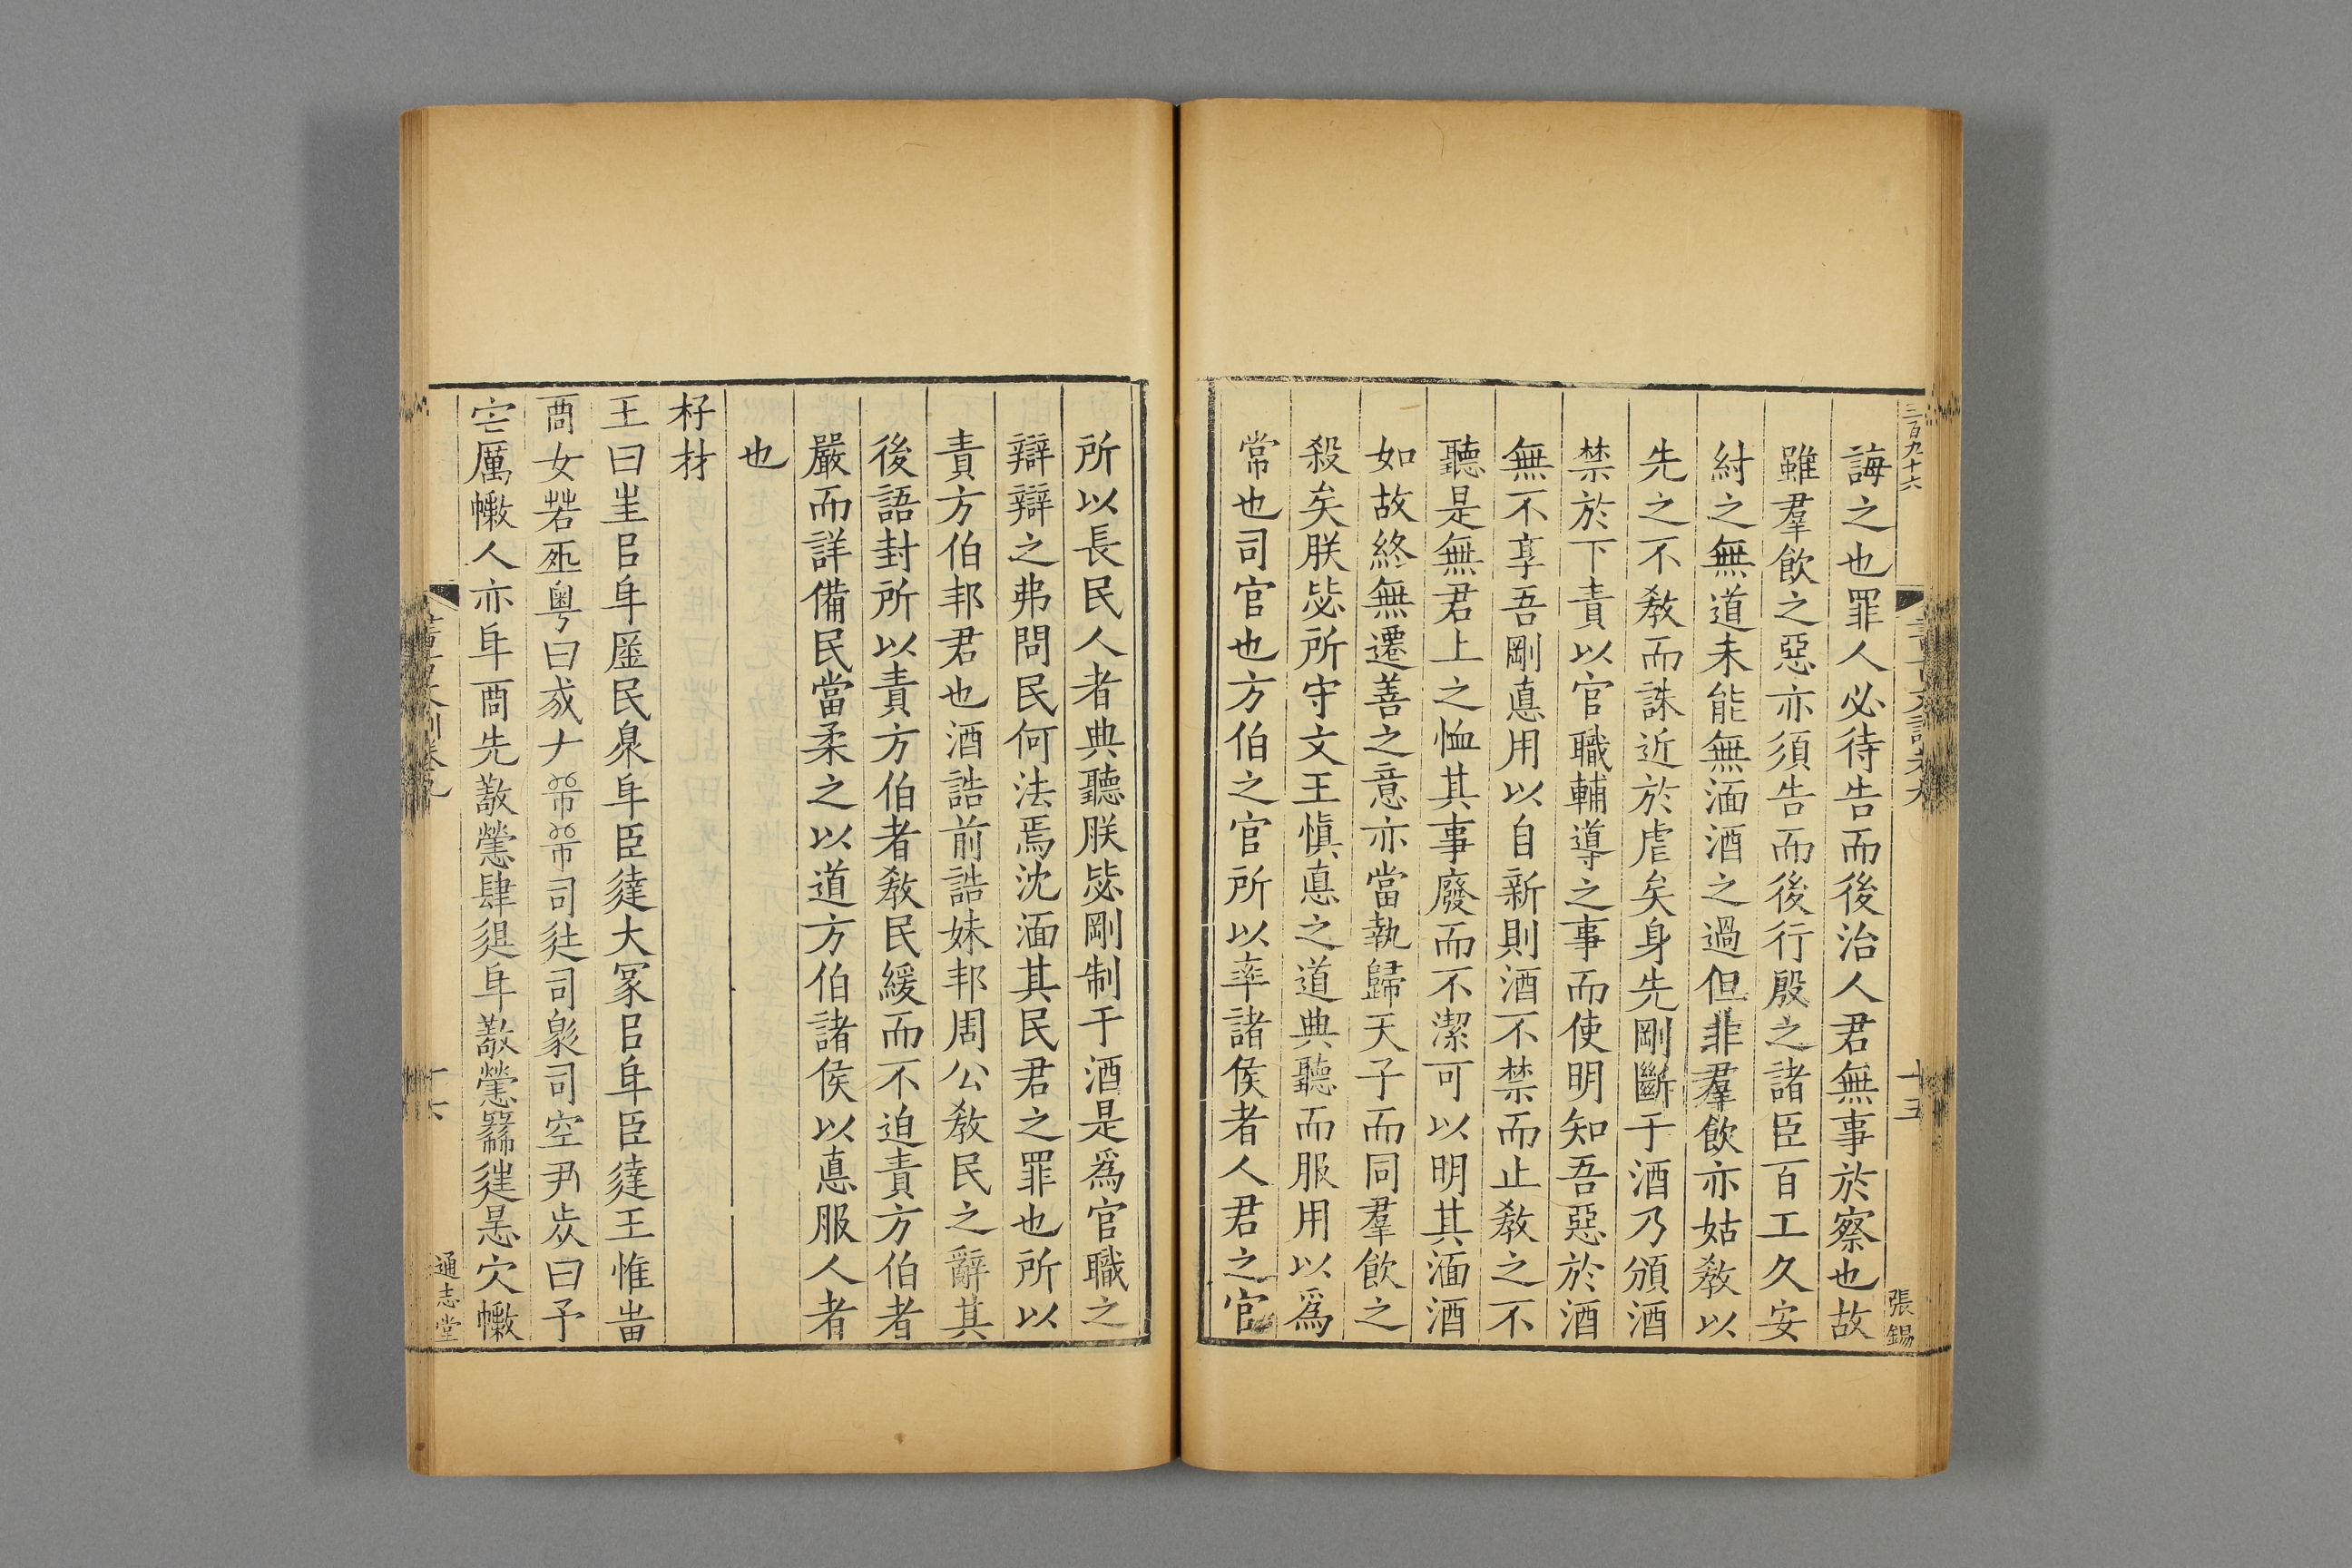 三百九十六
張錫
誨之也罪人必待告而後治人君無事於察也故
雖羣飲之惡亦須告而後行殷之諸臣百工久安
紂之無道未能無湎酒之過但非羣飲亦姑敎以
先之不敎而誅近於虐矣身先剛斷于酒乃頒酒
禁於下責以官職輔導之事而使明知吾惡於酒
無不享吾剛悳用以自新則酒不禁而止敎之不
聽是無君上之恤其事廢而不潔可以明其湎酒
如故終無遷善之意亦當執歸天子而同羣飲之
殺矣朕毖所守文王愼悳之道典聽而服用以爲
常也司官也方伯之官所以率諸侯者人君之官
所以長民人者典聽朕毖剛制于酒是爲官職之
辯辯之弗問民何法焉沈湎其民君之罪也所以
責方伯邦君也酒誥前誥妹邦周公敎民之辭其
後語封所以責方伯者敎民緩而不迫責方伯者
嚴而詳備民當柔之以道方伯諸侯以悳服人者
也
杍材
王曰㞷㠯厥民臮臣達大冢㠯臣達王惟
女若粤曰ナ司司司空尹曰予
厲人亦先肆人
通志堂